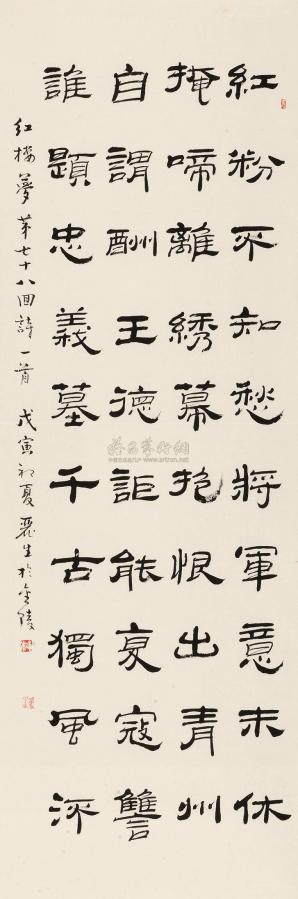 紅粉不知愁將軍意未休
掩啼離綉幕抱恨出青州
自謂酬王德詎能復寇讐
誰題忠義墓千古獨風流
红楼夢第七十八回詩一首 戊寅初夏 麗生於金陵